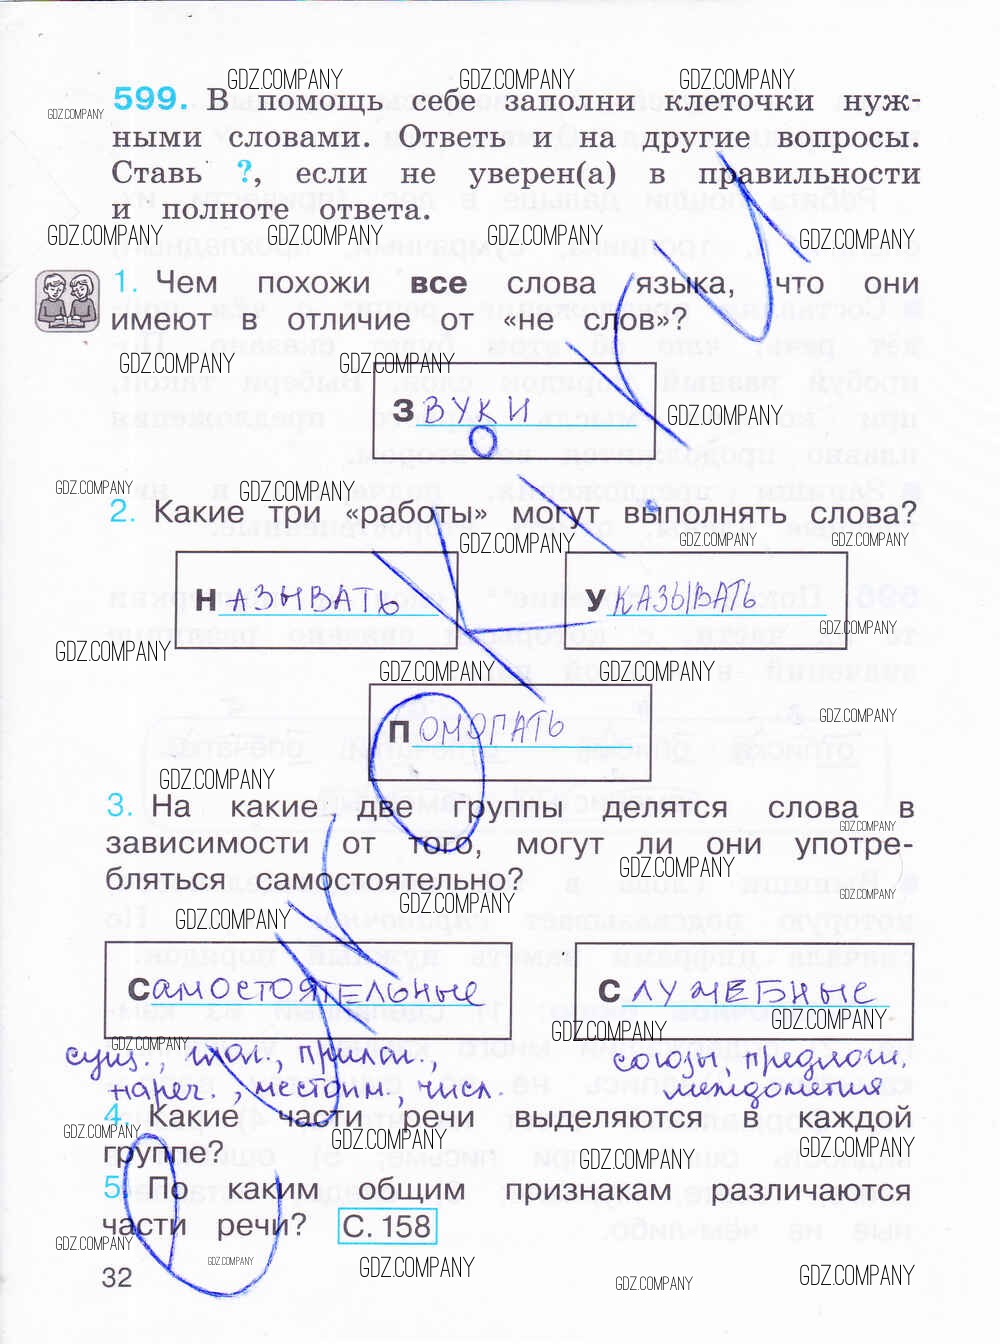 599. В помощь себе заполни клеточки нуж-
ными словами. Ответь и на другие вопросы.
Ставь ?, если не уверен(а) в правильности
и полноте ответа.
1. Чем похожи все слова языка, что они
имеют в отличие от «не слов»?
ЗВУКИ
2. Какие три «работы» могут выполнять слова?
НАЗЫВАТЬ УКАЗЫВАТЬ
ПОМОГАТЬ
3. На какие две группы делятся слова в
зависимости от того, могут ли они употре-
бляться самостоятельно?
САМОСТОЯТЕЛЬНЫЕ СЛУЖЕБНЫЕ
сущ., глаг., прилаг., союзы, предлоги.
нареч., местоим., числ. междометия
4. Какие части речи выделяются в каждой
группе?
5. По каким общим признакам различаются
части речи? С. 158
32
GDZ.COMPANY